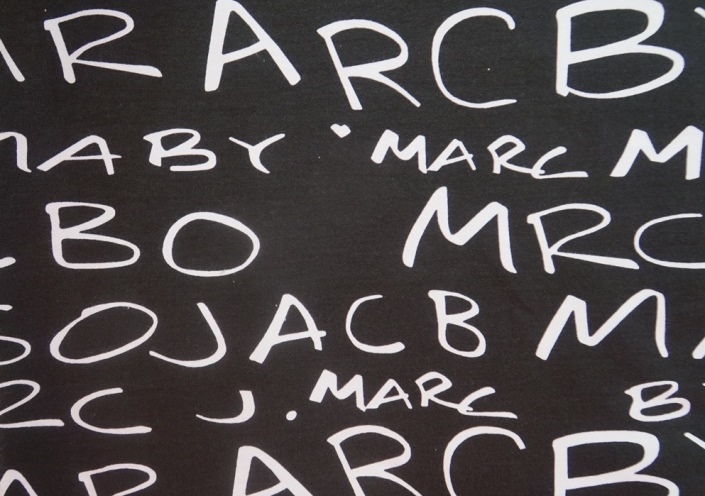 R ARC B
ABY MARC M
BO MRC
OJACB M
RC J. MARC B
AR ARC B